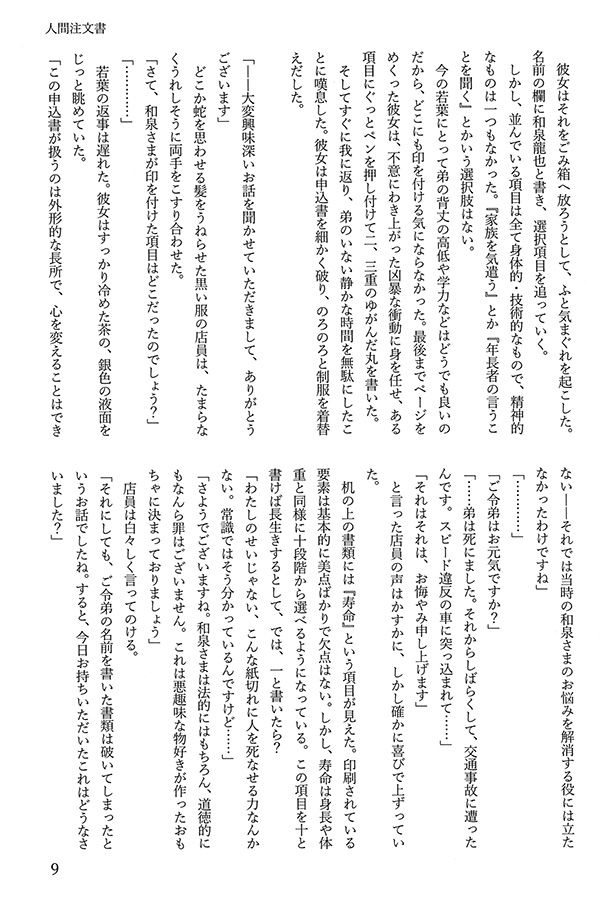 人間注文書
　彼女はそれをごみ箱へ放ろうとして、ふと気まぐれを起こした。
名前の欄に和泉龍也と書き、選択項目を追っていく。
　しかし、並んでいる項目は全て身体的・技術的なもので、精神的
なものは一つもなかった。『家族を気遣う』とか『年長者の言うこ
とを聞く』とかいう選択肢はない。
　今の若葉にとって弟の背丈の高低や学力などはどうでも良いの
だから、どこにも印を付ける気にならなかった。最後までページを
めくった彼女は、不意にわき上がった凶暴な衝動に身を任せ、ある
項目にぐっとペンを押し付けて二、三重のゆがんだ丸を書いた。
　そしてすぐに我に返り、弟のいない静かな時間を無駄にしたこ
とに嘆息した。彼女は申込書を細かく破り、のろのろと制服を着替
えだした。
「――大変興味深いお話を聞かせていただきまして、ありがとう
ございます」
　どこか蛇を思わせる髪をうねらせた黒い服の店員は、たまらな
くうれしそうに両手をこすり合わせた。
「さて、和泉さまが印を付けた項目はどこだったのでしょう？」
「…………」
　若葉の返事は遅れた。彼女はすっかり冷めた茶の、銀色の液面を
じっと眺めていた。
「この申込書が扱うのは外形的な長所で、心を変えることはでき
ない――それでは当時の和泉さまのお悩みを解消する役には立た
なかったわけですね」
「…………」
「ご令弟はお元気ですか？」
「……弟は死にました。それからしばらくして、交通事故に遭った
んです。スピード違反の車に突っ込まれて……」
「それはそれは、お悔やみ申し上げます」
　と言った店員の声はかすかに、しかし確かに喜びで上ずってい
た。
　机の上の書類には『寿命』という項目が見えた。印刷されている
要素は基本的に美点ばかりで欠点はない。しかし、寿命は身長や体
重と同様に十段階から選べるようになっている。この項目を十と
書けば長生きするとして、では、一と書いたら？
「わたしのせいじゃない、こんな紙切れに人を死なせる力なんか
ない。常識ではそう分かっているんですけど……」
「さようでございますね。和泉さまは法的にはもちろん、道徳的に
もなんら罪はございません。これは悪趣味な物好きが作ったおも
ちゃに決まっておりましょう」
　店員は白々しく言ってのける。
「それにしても、ご令弟の名前を書いた書類は破いてしまったと
いうお話でしたね。すると、今日お持ちいただいたこれはどうなさ
いました？」
9